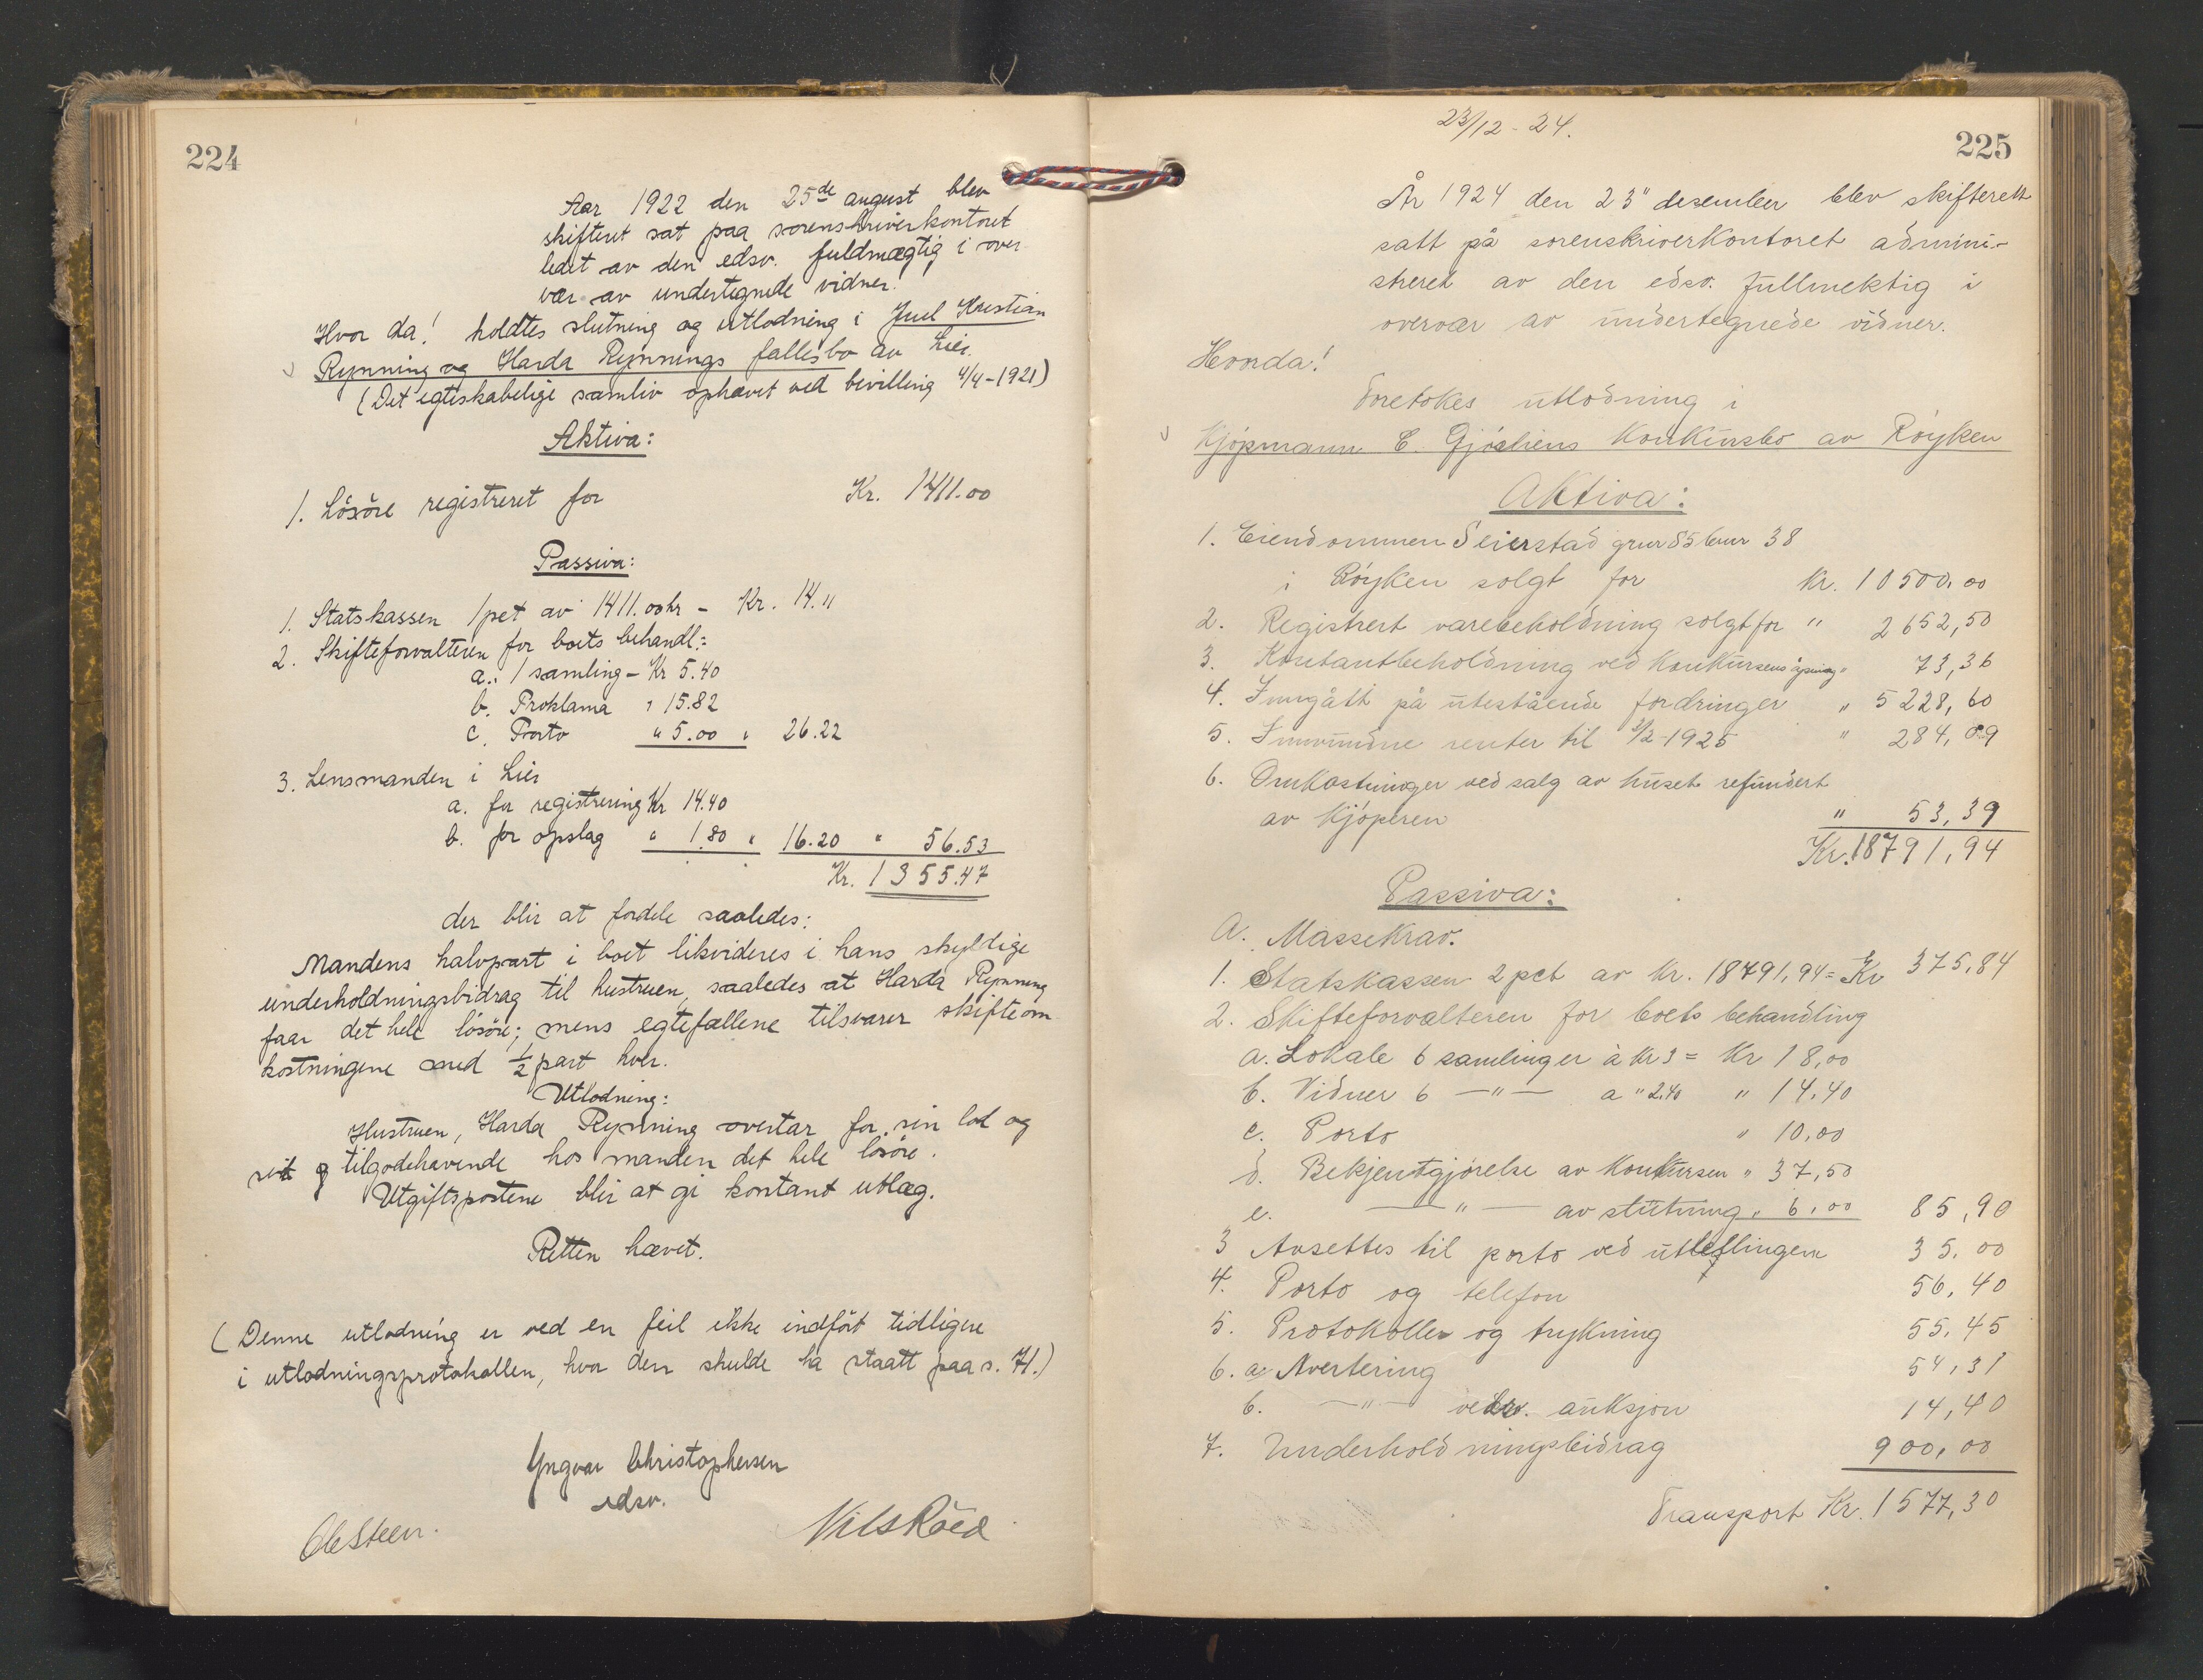 224
Aar 1922 den 25de august blev
skifteret sat paa sorenskriverkontoret
ledet av den edsv. fuldmægtig i over
vær av undertegnede vidner.
Hvor da! holdtes slutning og utlodning i Juel Kristian
Rynning og Harda Rynnings fællesbo av Lier.
(Det egteskabelige samliv ophævet ved bevilling 4/4-1921)
Aktiva:
1. Lösöre registreret for Kr. 1411.00
Passiva:
1. Statskassen 1 pct av 1411.00 kr - Kr. 14.11
2. Skifteforvalteren for boets behandl:
a. 1 samling - Kr 5.40
b. Proklama " 15.82
c. Porto " 5.00 " 26.22
3. Lensmanden i Lier
a. for registrering Kr 14.40
b. for opslag " 1.80 " 16.20 " 56.53
Kr. 1355.47
der blir at fordele saaledes:
Mandens halvpart i boet likvideres i hans skyldige
underholdningsbidrag til hustruen, saaledes at Harda Rynning
faar det hele lösöre; mens egtefællene tilsvarer skifteom
kostningene med 1/2 part hver.
Utlodning:
Hustruen, Harda Rynning overtar for sin lod og
sit tilgodehavende hos manden det hele lösöre.
Utgiftspostene blir at gi kontant utlæg.
Retten hævet.
(Denne utlodning er ved en feil ikke indfört tidligere
i utlodningsprotokollen, hvor den skulde ha staatt paa s. 71.)
Yngvar Christophersen
edsv.
Ole Steen. Nils Röed
23/12-24.
225
År 1924 den 23" desember blev skifterett
satt på sorenskriverkontoret admini-
streret av den edsv. fullmektig i
overvær av undertegnede vidner.
Hvorda!
Foretokes utlodning i
Kjöpmann E. Gjösliens konkursbo av Röyken
Aktiva:
1. Eiendommen Seierstad gnr 85 bnr 38
i Röyken solgt for Kr. 10500,00
2. Registrert varebeholdning solgt for " 2652,50
3. Kontantbeholdning ved konkursens åpning " 73,36
4. Inngått på utestående fordringer " 5228,60
5. Innvundne renter til 2/2-1925 " 284,09
6. Omkostninger ved salg av huset refundert
av kjöperen " 53,39
Kr. 18791,94
Passiva:
A. Massekrav.
1. Statskassen 2 pct av kr. 18791,94 = Kr 375,84
2. Skifteforvalteren for boets behandling
a. Lokale 6 samlinger à kr 3 = Kr 18,00
b. Vidner 6 —"— a " 2.40 " 14,40
c. Porto " 10,00
d. Bekjentgjörelse av konkursen " 37,50
e. —"— av slutning " 6,00 85,90
3 Avsettes til porto ved utleflingen 35,00
4. Porto og telefon 56,40
5. Protokoller og trykning 55,45
6. a Avertering 54,31
b. —"— vedr. auksjon 14,40
7. Underholdningsbidrag 900,00
Transport Kr. 1577,30